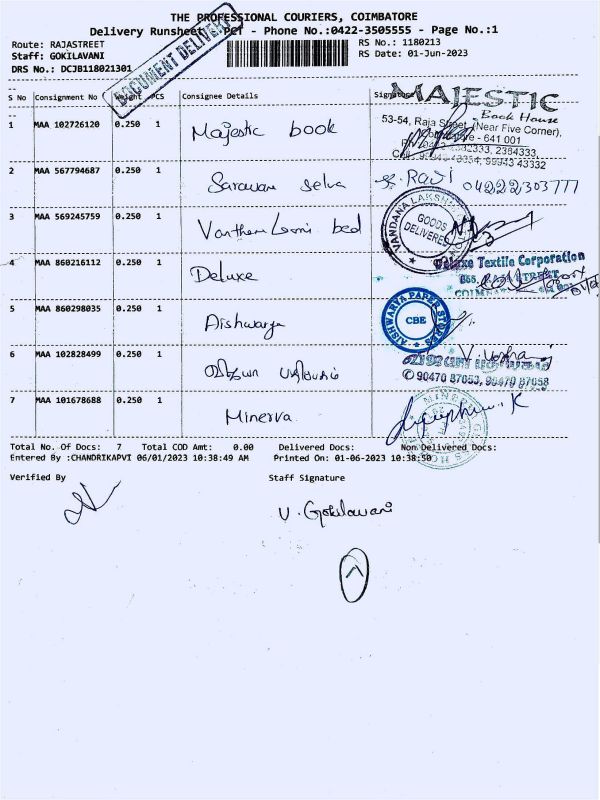 THE PROFESSIONAL COURIERS, COIMBATORE
Delivery Runsheet - PCT - Phone No.:0422-3505555 - Page No.:1
Route: RAJASTREET
RS No.: 1180213
Staff: GOKILAVANI
RS Date: 01-Jun-2023
DRS No.: DCJB118021301
DOCUMENT DELIVERY
S No Consignment No Weight PCS Consignee Details Signature
MAJESTIC
Book House
53-54, Raja Street, (Near Five Corner),
- 641 001
1 MAA 102726120 0.250 1 Majestic book
2 MAA 567794687 0.250 1 Sarawana Selva 04222303777
3 MAA 569245759 0.250 1 bed
VANDANA LAKSHMI
GOODS DELIVERED
4 MAA 860216112 0.250 1 Deluxe
Deluxe Textile Corporation
5 MAA 860298035 0.250 1 Aishwarya
AISHWARYA PAPER STORES
CBE
6 MAA 102828499 0.250 1
7 MAA 101678688 0.250 1 Minerva
Total No. Of Docs: 7 Total COD Amt: 0.00 Delivered Docs: Non Delivered Docs:
Entered By :CHANDRIKAPVI 06/01/2023 10:38:49 AM Printed On: 01-06-2023 10:38:50
Verified By Staff Signature
V. Gokilavani